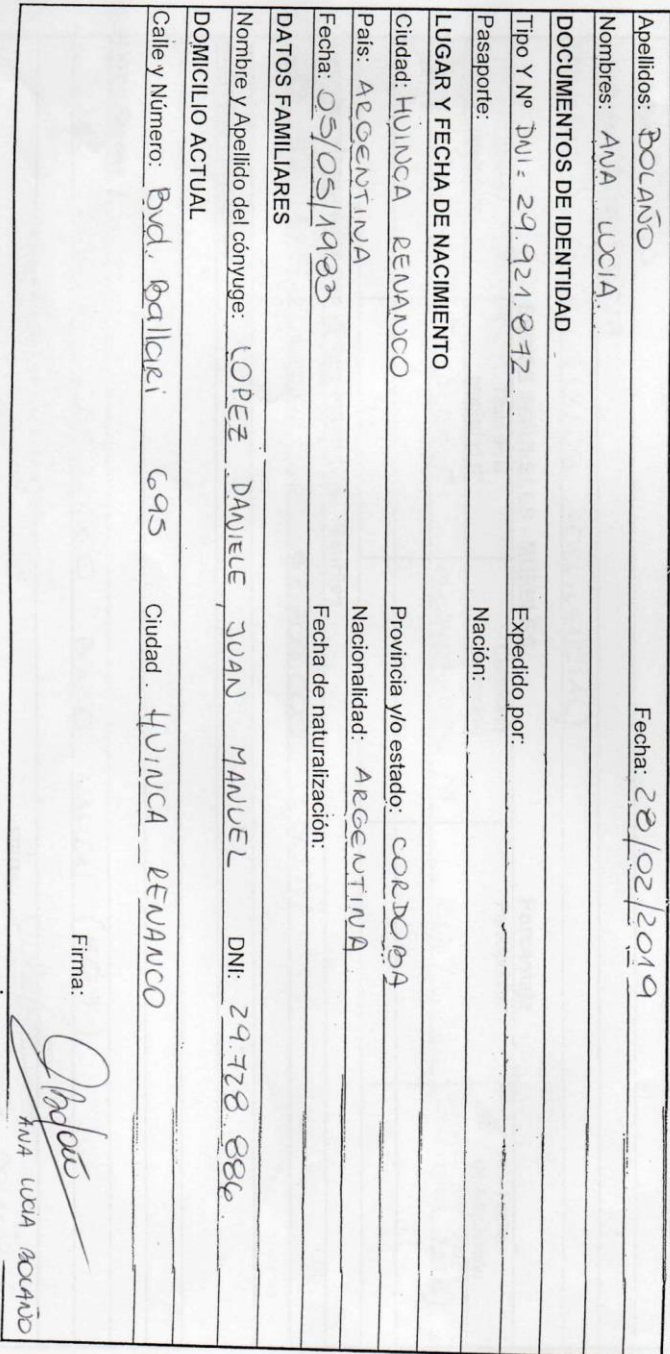 Apellidos: BOLAÑO Fecha: 28/02/2019
Nombres: ANA LUCIA
DOCUMENTOS DE IDENTIDAD
Tipo Y Nº DNI: 29.921.872 Expedido por:
Pasaporte: Nación:
LUGAR Y FECHA DE NACIMIENTO
Ciudad: HUINCA RENANCO Provincia y/o estado: CORDOBA
País: ARGENTINA Nacionalidad: ARGENTINA
Fecha: 05/05/1983 Fecha de naturalización:
DATOS FAMILIARES
Nombre y Apellido del cónyuge: LOPEZ DANIELE, JUAN MANUEL DNI: 29.728.886
DOMICILIO ACTUAL
Calle y Número: Bvd. Ballari 695 Ciudad. HUINCA RENANCO
Firma:
ANA LUCIA BOLAÑO